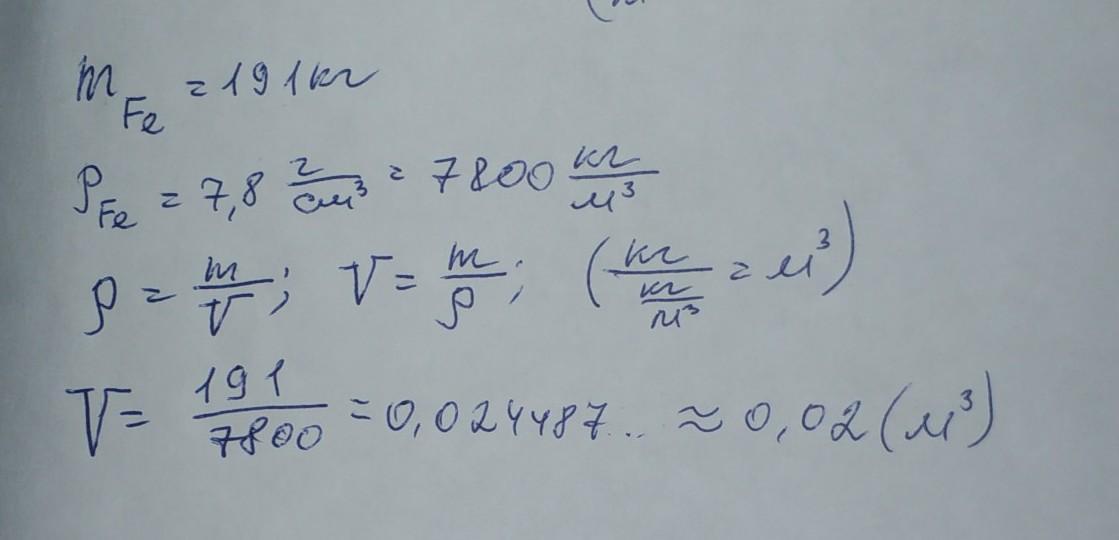 m_Fe = 191 кг
ρ_Fe = 7,8 г/см³ = 7800 кг/м³
ρ = m/V; V = m/ρ; (кг/(кг/м³) = м³)
V = 191/7800 = 0,024487... ≈ 0,02 (м³)